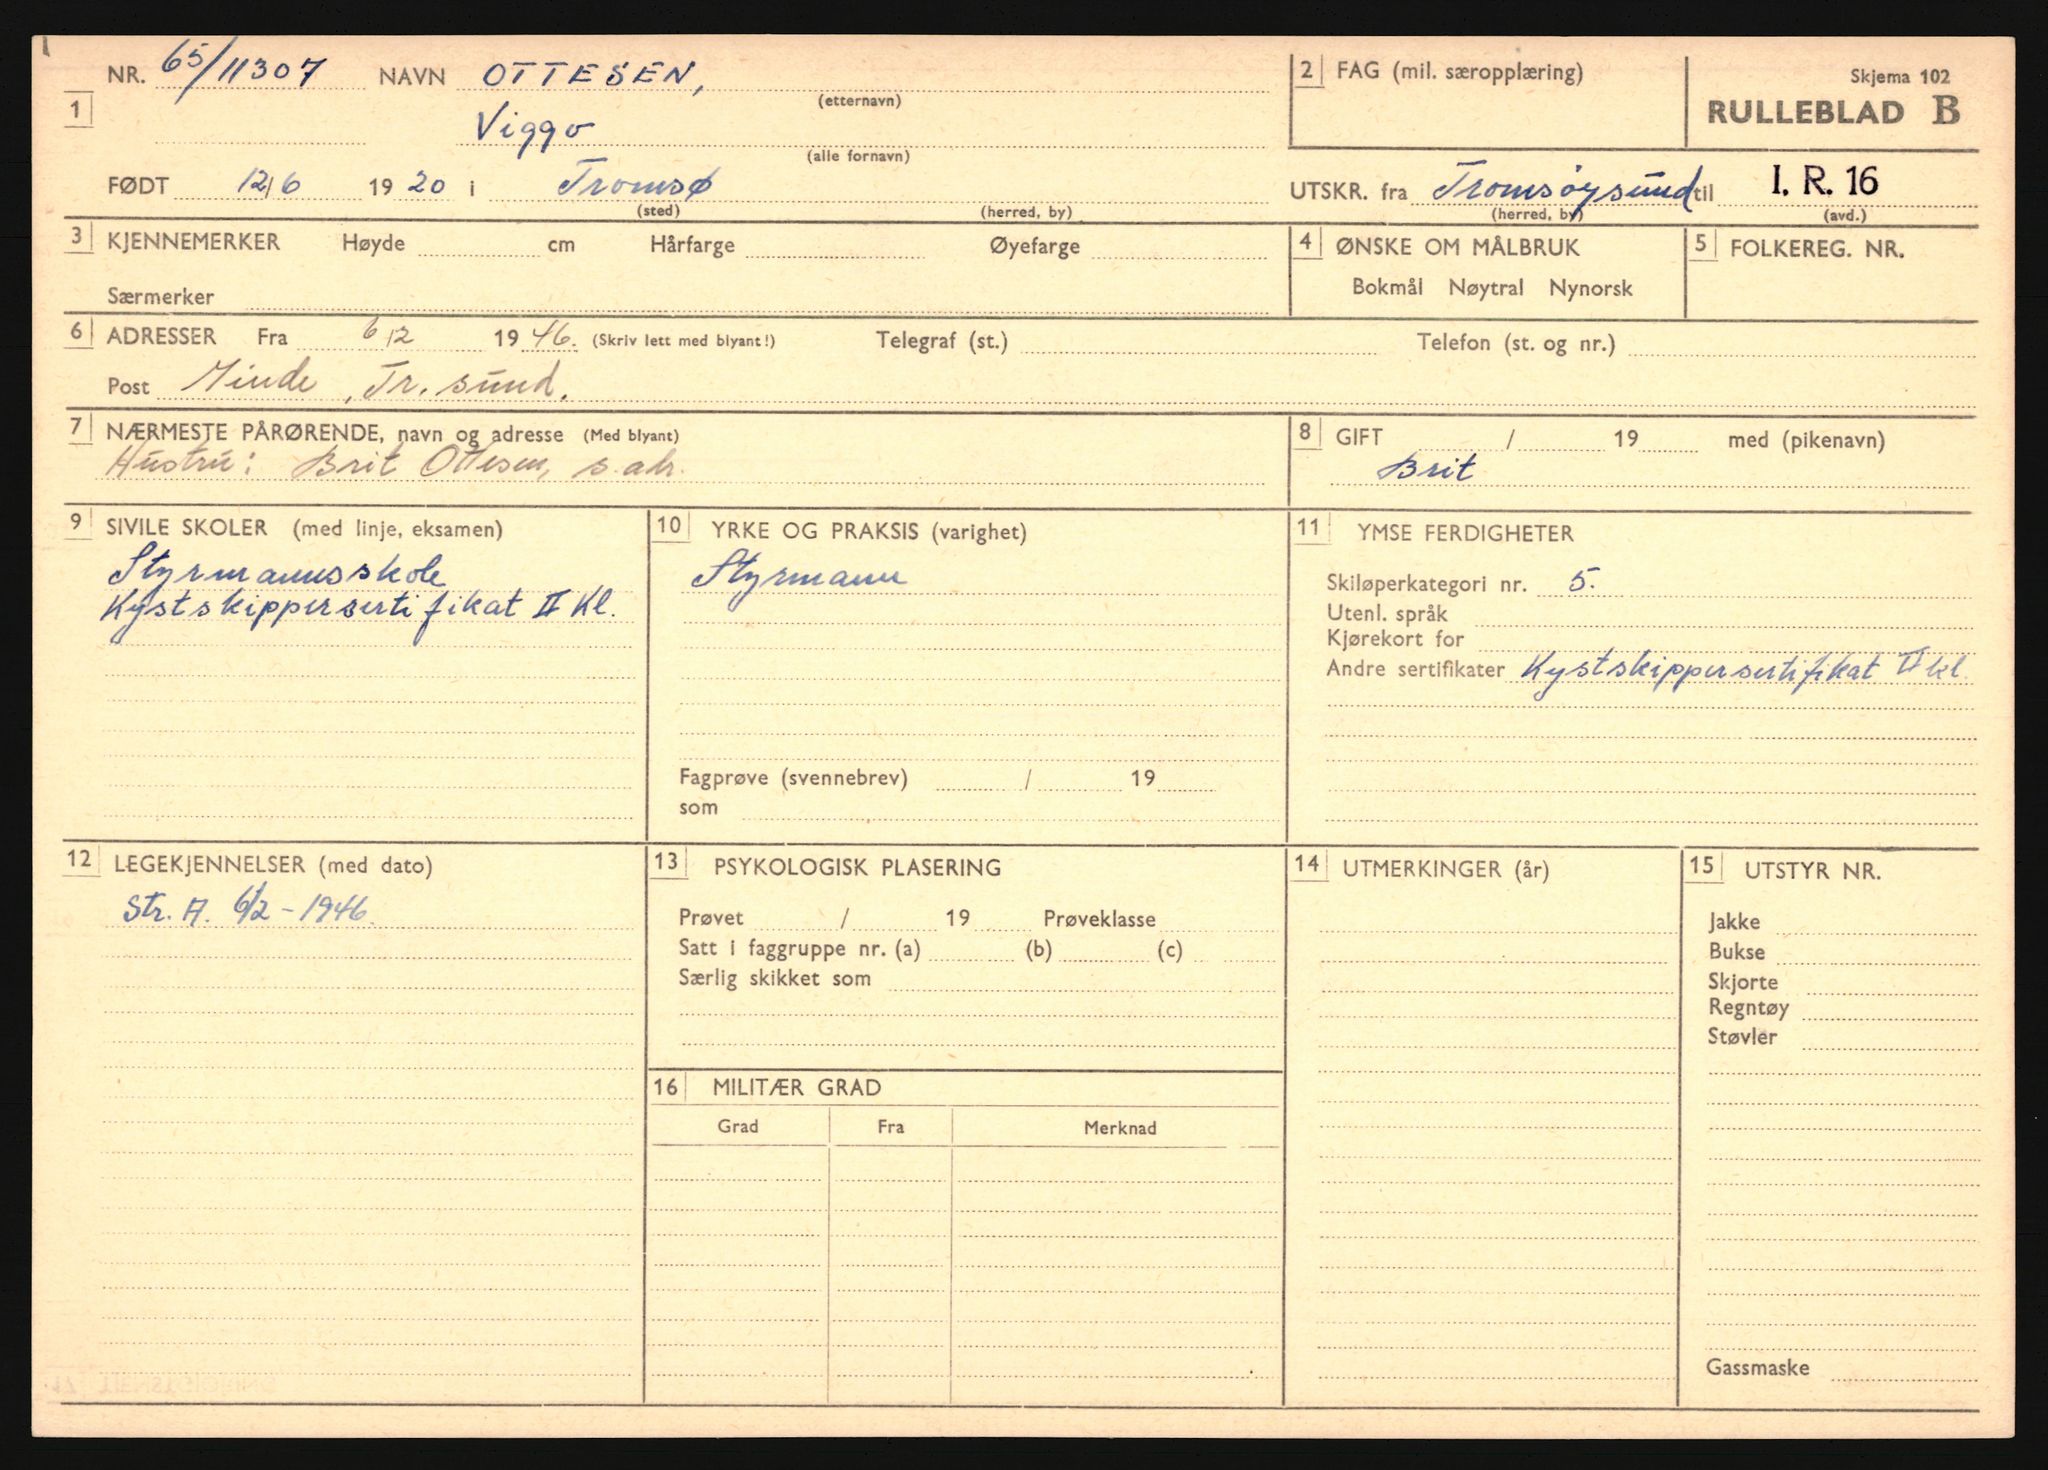 NR. 65/11307 NAVN OTTESEN, (etternavn)
1
Viggo
(alle fornavn)
FØDT 12/6 1920 i Tromsø
(sted) (herred, by)
2 FAG (mil. særopplæring)
Skjema 102
RULLEBLAD B
UTSKR. fra Tromsøysund til I. R. 16
(herred, by) (avd.)
3 KJENNEMERKER Høyde cm Hårfarge Øyefarge
Særmerker
4 ØNSKE OM MÅLBRUK
Bokmål Nøytral Nynorsk
5 FOLKEREG. NR.
6 ADRESSER Fra 6/2 1946. (Skriv lett med blyant!) Telegraf (st.) Telefon (st. og nr.)
Post Minde, Tr. sund.
7 NÆRMESTE PÅRØRENDE, navn og adresse (Med blyant)
Hustru: Brit Ottesen, s. adr.
8 GIFT / 19 med (pikenavn)
Brit
9 SIVILE SKOLER (med linje, eksamen)
Styrmannsskole
Kystskippersertifikat II Kl.
10 YRKE OG PRAKSIS (varighet)
Styrmann
Fagprøve (svennebrev) / 19
som
11 YMSE FERDIGHETER
Skiløperkategori nr. 5.
Utenl. språk
Kjørekort for
Andre sertifikater Kystskippersertifikat II kl.
12 LEGEKJENNELSER (med dato)
Str. A. 6/2 - 1946.
13 PSYKOLOGISK PLASERING
Prøvet / 19 Prøveklasse
Satt i faggruppe nr. (a) (b) (c)
Særlig skikket som
14 UTMERKINGER (år)
15 UTSTYR NR.
Jakke
Bukse
Skjorte
Regntøy
Støvler
Gassmaske
16 MILITÆR GRAD
Grad Fra Merknad